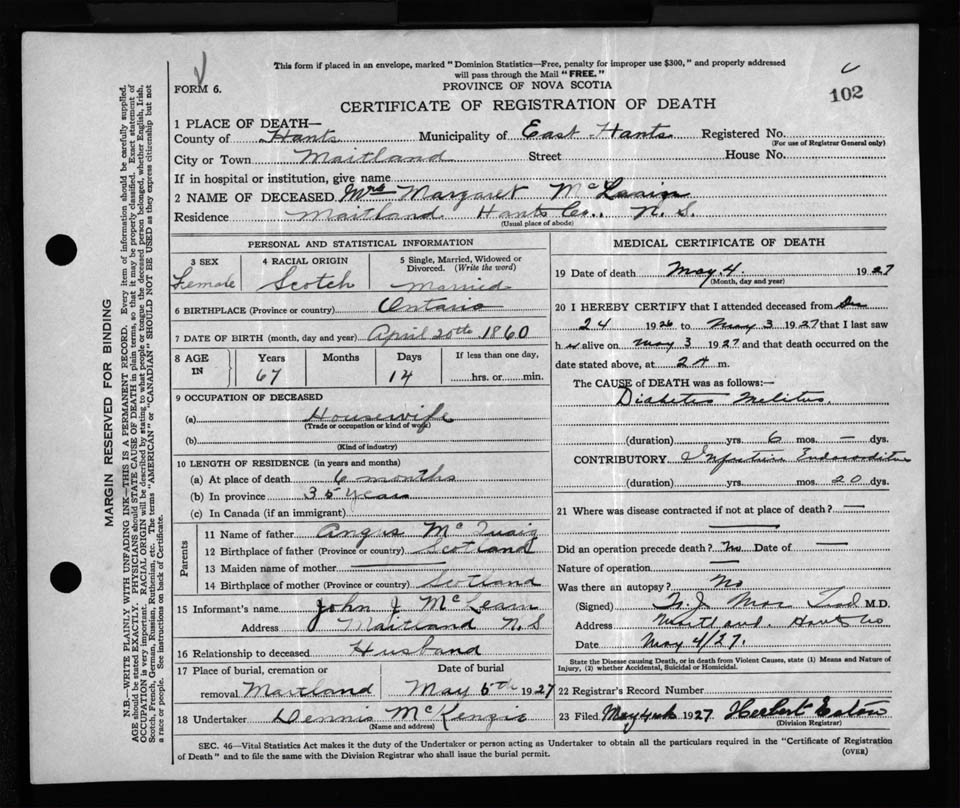 This form if placed in an envelope, marked "Dominion Statistics—Free, penalty for improper use $300," and properly addressed
will pass through the Mail "FREE."
FORM 6.
PROVINCE OF NOVA SCOTIA
102
CERTIFICATE OF REGISTRATION OF DEATH
1 PLACE OF DEATH—
County of Hants Municipality of East Hants Registered No.
(For use of Registrar General only)
City or Town Maitland Street House No.
If in hospital or institution, give name
2 NAME OF DECEASED Mrs Margaret McLean
Residence Maitland Hants Co., N. S.
(Usual place of abode)
PERSONAL AND STATISTICAL INFORMATION
3 SEX 4 RACIAL ORIGIN 5 Single, Married, Widowed or Divorced. (Write the word)
Female Scotch Married
6 BIRTHPLACE (Province or country) Ontario
7 DATE OF BIRTH (month, day and year) April 20th 1860
8 AGE IN Years Months Days If less than one day,
67 14 hrs. or min.
9 OCCUPATION OF DECEASED
(a) Housewife
(Trade or occupation or kind of work)
(b)
(Kind of industry)
10 LENGTH OF RESIDENCE (in years and months)
(a) At place of death 6 months
(b) In province 35 years
(c) In Canada (if an immigrant)
Parents
11 Name of father Angus McCuaig
12 Birthplace of father (Province or country) Scotland
13 Maiden name of mother —
14 Birthplace of mother (Province or country) Scotland
15 Informant's name John J McLean
Address Maitland N. S
16 Relationship to deceased Husband
17 Place of burial, cremation or Date of burial
removal Maitland May 5th 1927
18 Undertaker Dennis McKenzie
(Name and address)
MEDICAL CERTIFICATE OF DEATH
19 Date of death May 4. 1927
(Month, day and year)
20 I HEREBY CERTIFY that I attended deceased from
24 1926 to May 3 1927 that I last saw
h er alive on May 3 1927 and that death occurred on the
date stated above, at 2 A m.
The CAUSE of DEATH was as follows:—
Diabetes Melitus.
(duration) yrs. 6 mos. — dys.
CONTRIBUTORY Infective Endocarditis
(duration) yrs. mos. 20 dys.
21 Where was disease contracted if not at place of death? —
Did an operation precede death? No Date of —
Nature of operation —
Was there an autopsy? No
(Signed) J M.D.
Address Maitland. Hants Co
Date May 4/27.
State the Disease causing Death, or in death from Violent Causes, state (1) Means and Nature of
Injury, (2) whether Accidental, Suicidal or Homicidal.
22 Registrar's Record Number
23 Filed May 4th 1927 Herbert Eaton
(Division Registrar)
SEC. 46—Vital Statistics Act makes it the duty of the Undertaker or person acting as Undertaker to obtain all the particulars required in the "Certificate of Registration
of Death" and to file the same with the Division Registrar who shall issue the burial permit.
(OVER)
MARGIN RESERVED FOR BINDING
N.B.—WRITE PLAINLY WITH UNFADING INK—THIS IS A PERMANENT RECORD. Every item of information should be carefully supplied.
AGE should be stated EXACTLY. PHYSICIANS should STATE CAUSE OF DEATH in plain terms, so that it may be properly classified. Exact statement of
OCCUPATION is very important. RACIAL ORIGIN will be described by stating to what people or tongue the deceased person belonged, whether English, Irish,
Scotch, French, German, Russian, Ruthenian, etc. The terms "AMERICAN" or "CANADIAN" SHOULD NOT BE USED as they express citizenship but not
a race or people. See instructions on back of Certificate.